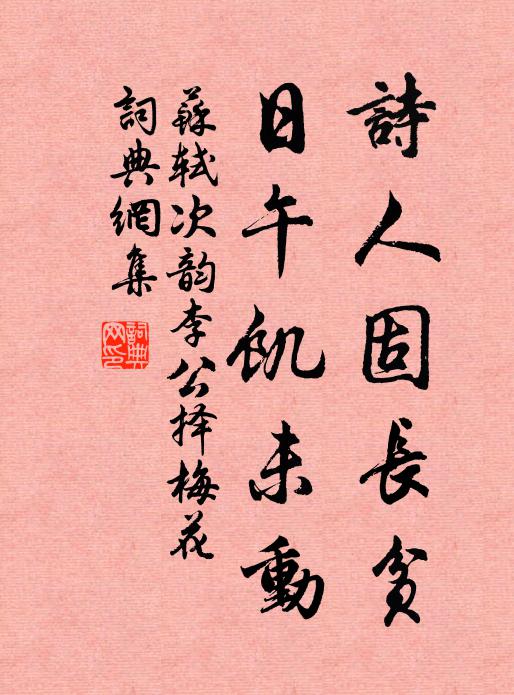 詩人固長貧
日午飢未動
蘇軾次韵李公择梅花
詞典網集
詞典網印